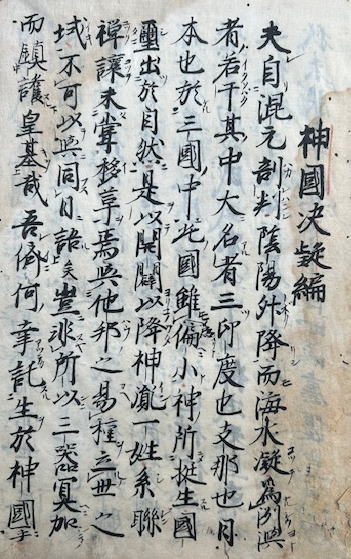 神國决疑編
夫自混元剖判陰陽升降而海水凝爲洲與
者若干其中大名者三印度也支那也日
本也於三國中此國雖偏小神所挺生國
璽出於自然是以開闢以降神胤一姓系聯
禅讓未嘗移革焉與他邦之易種立世之
域不可以與同日語矣豈非所以三器冥加
而鎮護皇基哉吾儕何幸託生於神國